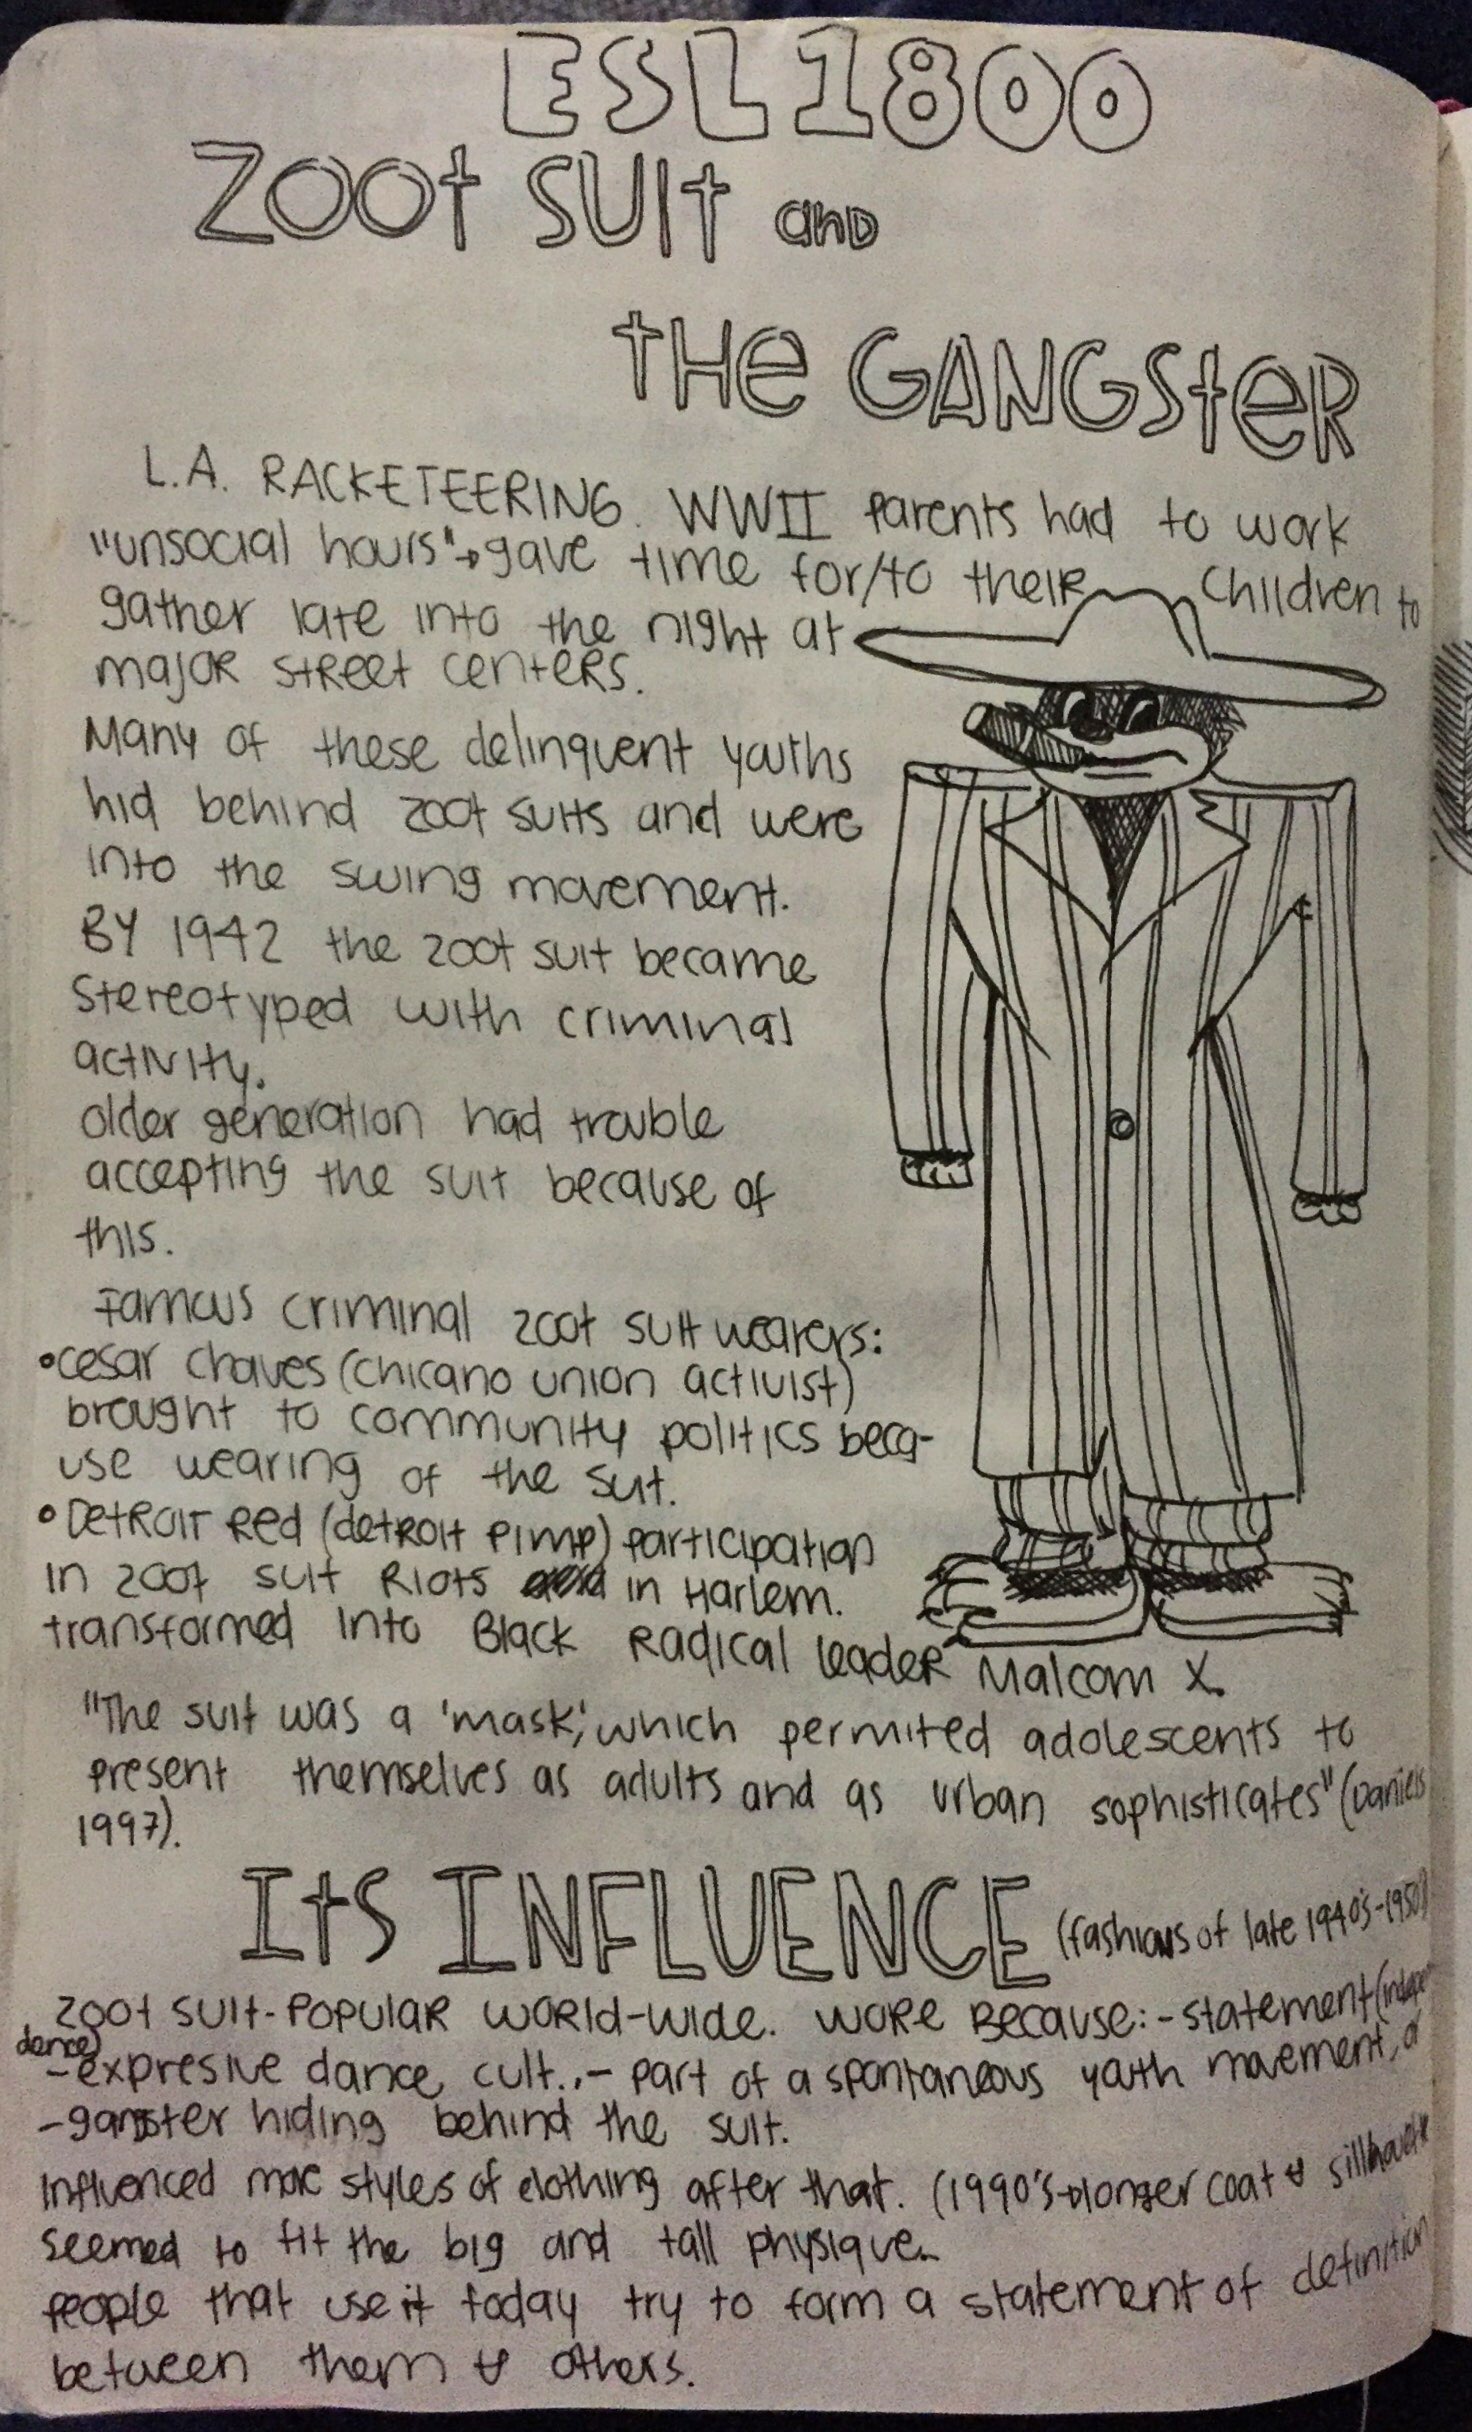 ESL 1800
Zoot Suit and
the Gangster
L.A. RACKETEERING. WWII parents had to work
"unsocial hours" → gave time for/to their children to
gather late into the night at
major street centers.
Many of these delinquent youths
hid behind zoot suits and were
into the swing movement.
By 1942 the zoot suit became
stereotyped with criminal
activity.
older generation had trouble
accepting the suit because of
this.
Famous criminal zoot suit wearers:
•Cesar Chaves (Chicano union activist)
brought to community politics beca-
use wearing of the suit.
•Detroit Red (detroit pimp) participation
in zoot suit Riots in Harlem.
transformed into Black Radical leader Malcom X.
"The suit was a 'mask,' which permited adolescents to
present themselves as adults and as urban sophisticates" (Daniels
1997).
Its INFLUENCE (fashions of late 1940's-1950's)
zoot suit-popular world-wide. Wore Because: -statement (indepen
dence)
-expresive dance cult.,- part of a spontaneous youth movement, or
-gangster hiding behind the suit.
Influenced more styles of clothing after that. (1990's→longer coat & sillhouete
seemed to fit the big and tall physique.
people that use it today try to form a statement of definition
between them & others.